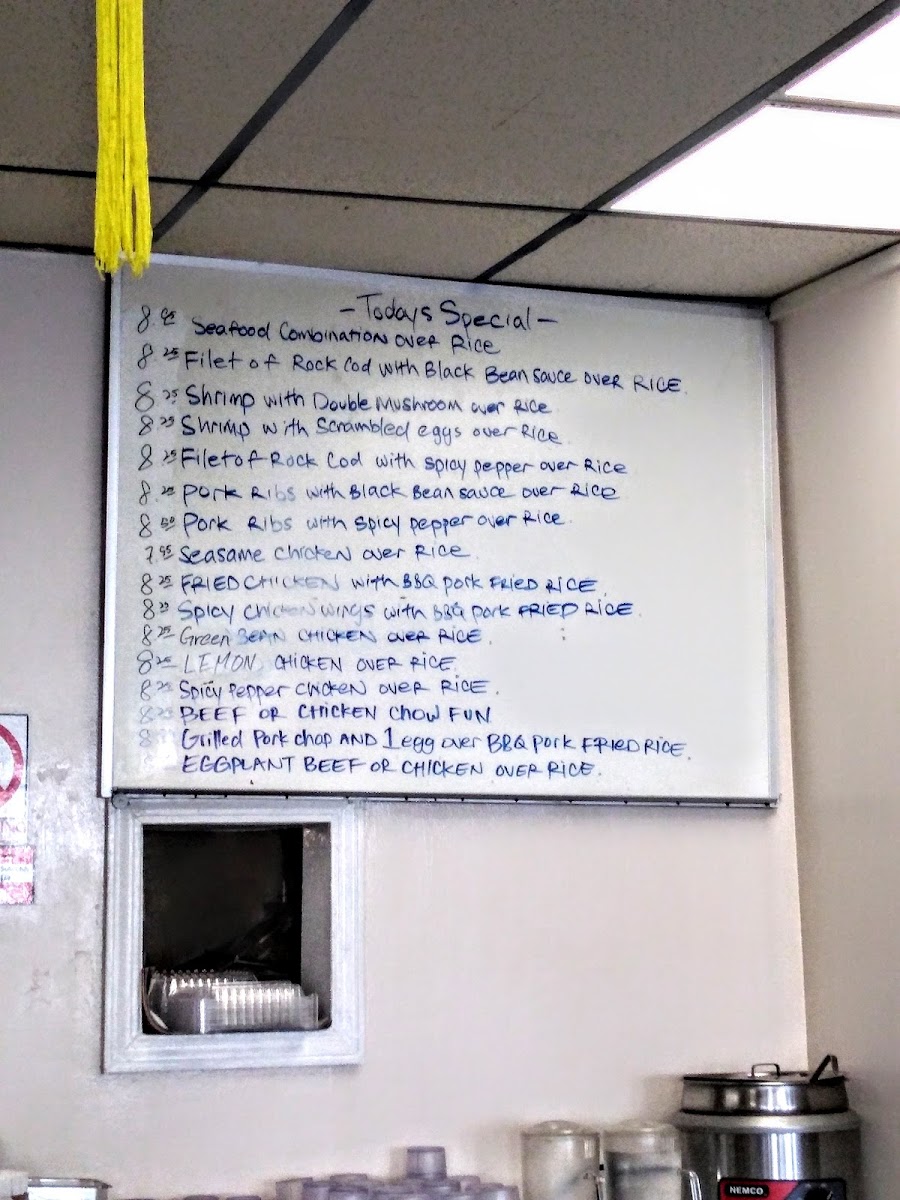 -Todays Special-
8.95 Seafood Combination over Rice
8.25 Filet of Rock Cod with Black Bean sauce over RICE.
8.25 Shrimp with Double Mushroom over Rice
8.25 Shrimp with Scrambled eggs over Rice.
8.25 Filet of Rock Cod with spicy pepper over Rice
8.25 Pork Ribs with Black Bean sauce over Rice
8.50 Pork Ribs with spicy pepper over Rice.
7.95 Seasame chicken over Rice.
8.25 FRIED CHICKEN with BBQ pork FRIED RICE.
8.25 Spicy chicken wings with BBQ pork FRIED RICE.
8.25 Green BEAN CHICKEN OVER RICE.
8.25 LEMON CHICKEN OVER RICE.
8.25 Spicy Pepper chicken over RICE.
8.25 BEEF OR CHICKEN CHOW FUN
8. Grilled Pork chap AND 1 egg over BBQ pork FRIED RICE.
EGGPLANT BEEF OR CHICKEN OVER RICE.
NEMCO